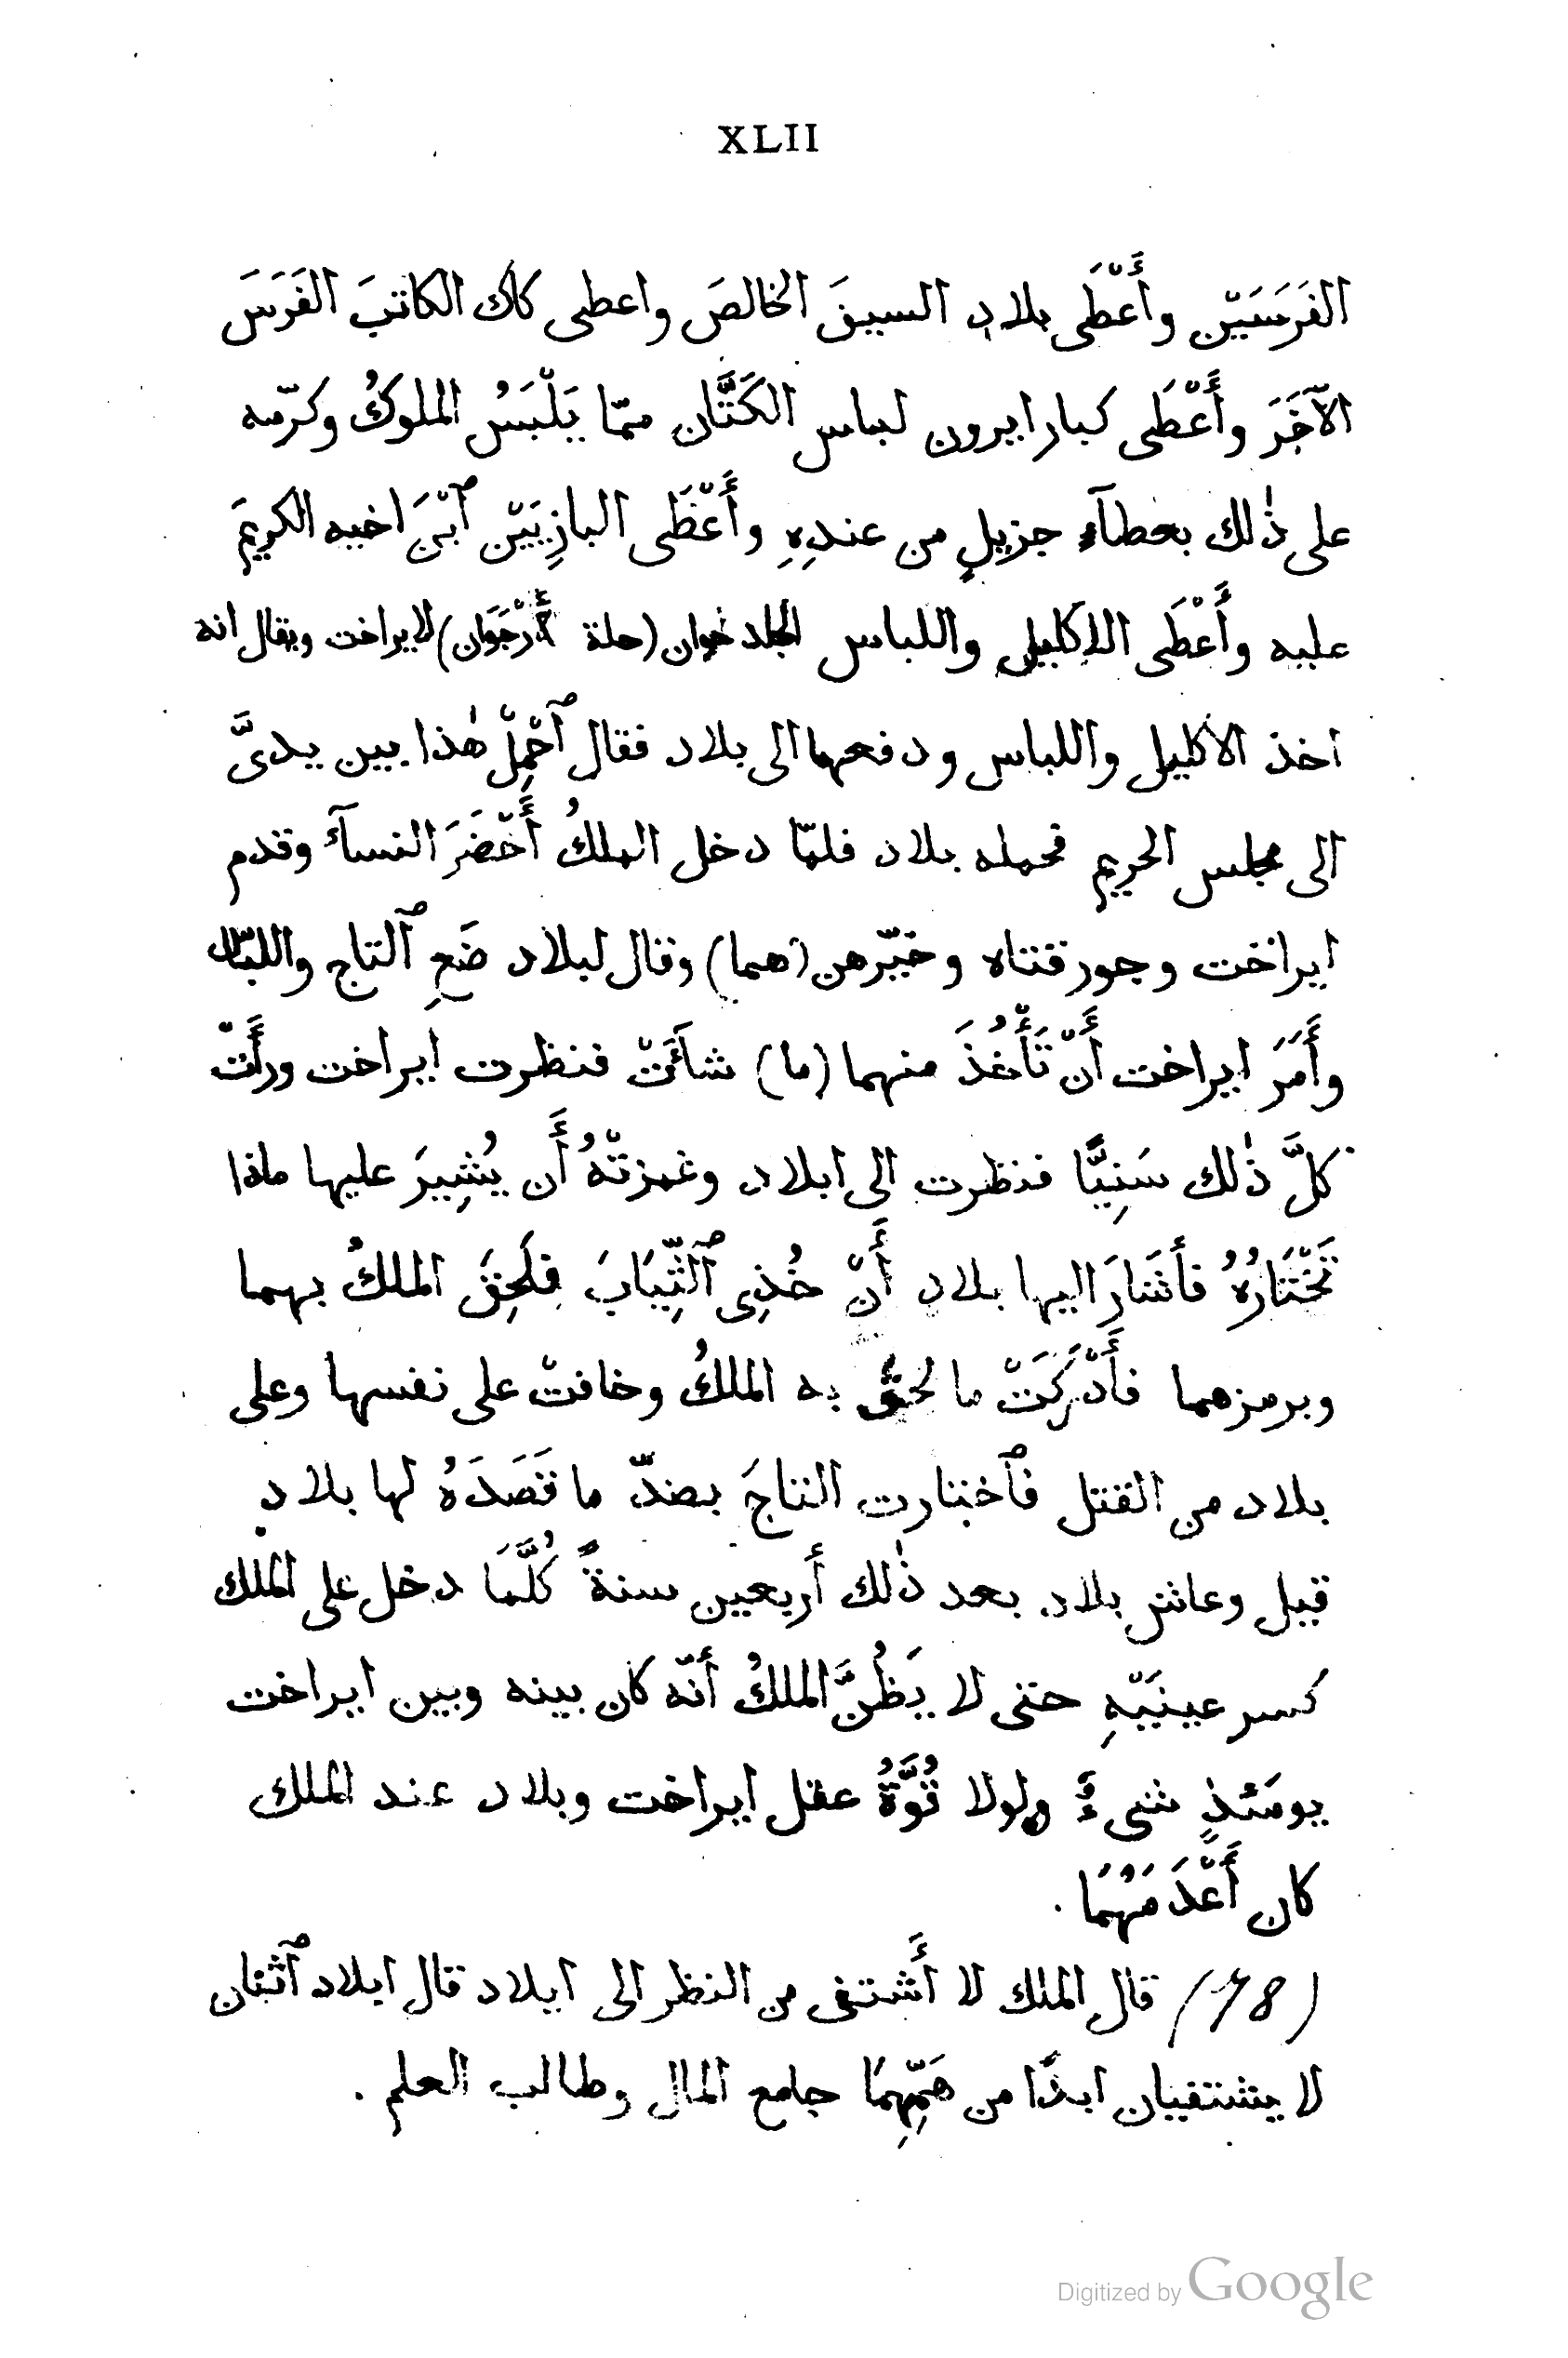 XLII
الفَرَسَيْن وأَعْطَى بلاد السيفَ الخالصَ واعطى كاك الكاتبَ الفَرَسَ
الآخَرَ وأَعْطَى كبار ايرون لباس الكَتَّان ممّا يَلْبَسُ الملوكُ وكرّمه
على ذٰلك بعطآء جزيلٍ من عندِهِ وأَعْطَى البازِيَيْن ٱبْنَ اخيه الكريمَ
عليه وأَعْطَى الإكليل واللباس (حلة أُرْجَوَان) لايراخت ويقال انه
اخذ الاكليل واللباس ودفعهما الى بلاد فقال ٱحْمِلْ هٰذا بين يدىَّ
الى مجلس الحريم فحمله بلاد فلمّا دخل الملكُ أَحْضَرَ النسآء وقدم
ايراخت وجورقنتاه وخيّرهن (هما) وقال لبلاد ضَعِ ٱلتاج واللباس
وأَمَرَ ايراخت أَنْ تَأْخُذَ منهما (ما) شآءَتْ فنظرت ايراخت ورأَتْ
كلَّ ذٰلك سَنِيًّا فنظرت الى ابلاد وغمزتْهُ أَن يُشِيرَ عليها ماذا
تَخْتَارُهُ فأَشَارَ اليها بلاد أَنْ خُذِى ٱلثِّيَابَ فلَحِقَ الملكُ بهما
وبرمزهما فأَدْرَكَتْ ما لحق به الملكُ وخافتْ على نفسها وعلى
بلاد من القتل فٱختارت التاجَ بضدّ ما قَصَدَهُ لها بلاد
قيل وعاش بلاد بعد ذٰلك أربعين سنةً كُلَّمَا دخل على الملك
كسر عينَيْهِ حتى لا يَظُنَّ الملكُ أنّه كان بينه وبين ايراخت
يومَئذٍ شىءٌ ولولا قُوَّةُ عقل ايراخت وبلاد عند الملك
كان أَعْدَمَهُمَا .
(98) قال الملك لا أَشتفى من النظر الى ايلاد قال ايلاد ٱثنان
لا يشتفيان ابدًا من هَمِّهِمَا جامع المال وطالب العلم .
Digitized by Google